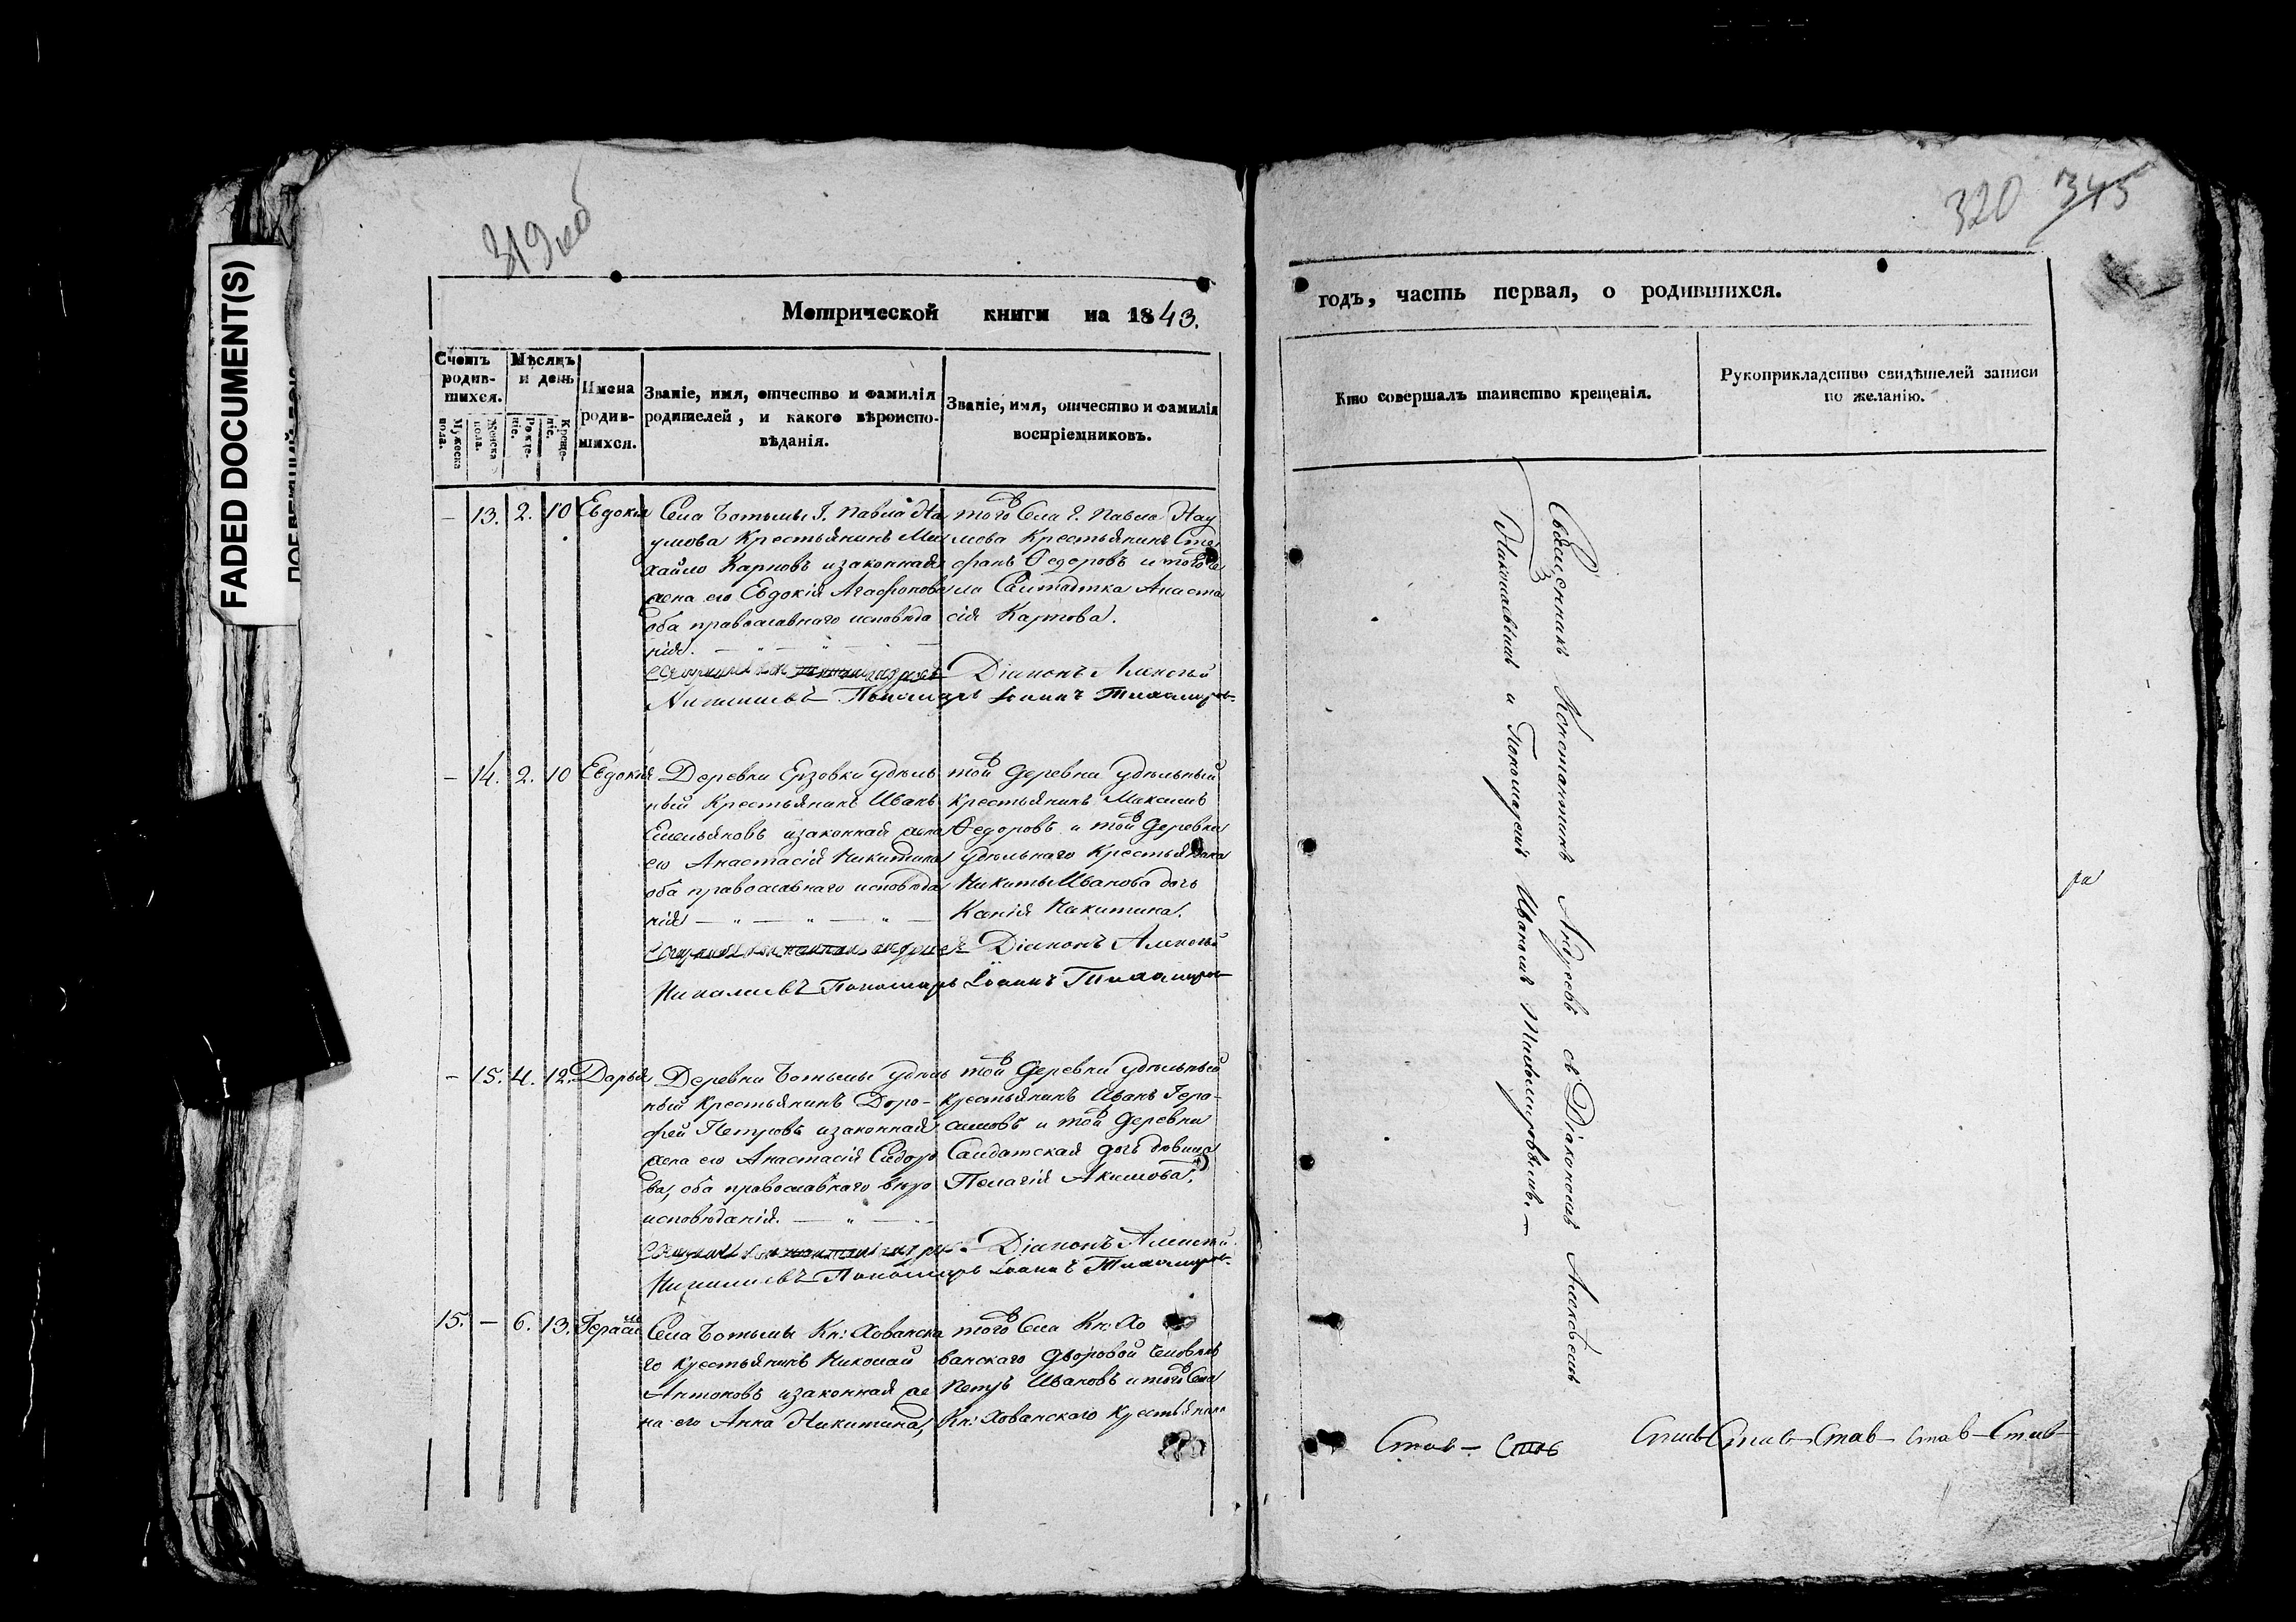 FADED DOCUMENT(S)
319 об
320 345
Метрической книги на 1843.
годъ, часть первая, о родившихся.
Счетъ родившихся.
Мужеска пола.
Женска пола.
Мѣсяцъ и день
Рожденіе.
Крещеніе.
Имена родившихся.
Званіе, имя, отчество и фамилія
родителей, и какого вѣроиспо-
вѣданія.
Званіе, имя, отчество и фамилія
воспріемниковъ.
Кто совершалъ таинство крещенія.
Рукоприкладство свидѣтелей записи
по желанію.
— 13. 2. 10 Евдокія
Села Ботьмы Г. Павла На
умова Крестьянинъ Ми
хайло Карповъ изаконная
жена его Евдокія Агафонова
оба православнаго исповѣда
нія.
того Села Г. Павла Нау
мова Крестьянинъ Сте
фанъ Ѳедоровъ и того Се
ла Салтадтка Анаста
сія Карпова.
Діаконъ Алексѣй
Николаевъ Пономарь Іоаннъ Тихомиров
— 14. 2. 10 Евдокія
Деревни Ерзовки удѣль
ный Крестьянинъ Иванъ
Емельяновъ изаконная жена
его Анастасія Никитина
оба православнаго исповѣда
нія
той деревни удѣльный
крестьянинъ Максимъ
Ѳедоровъ и той деревни
удѣльнаго Крестьянина
Никиты Иванова дочь
Ксенія Никитина.
Діаконъ Алексѣй
Николаевъ Пономарь Іоаннъ Тихомиров
— 15. 4. 12. Дарья
Деревни Ботьмы удѣль
ный крестьянинъ Доро-
фей Петровъ изаконная
жена его Анастасія Сидоро
ва, оба православнаго вѣро
исповѣданія.
той деревни удѣльный
крестьянинъ Иванъ Гера-
симовъ и той деревни
Салдатская дочь дѣвица
Пелагія Акимова.
Діаконъ Алексѣй
Николаевъ Пономарь Іоаннъ Тихомиров
15. — 6. 13. Герасим
Села Ботьмы Кн: Хованска
го крестьянинъ Николай
Антоновъ изаконная же
на его Анна Никитина,
того Села Кн: Хо
ванскаго дворовой человѣкъ
Петръ Ивановъ и того Села
Кн: Хованскаго крестьянина
Священникъ Константинъ Андреевъ съ Діакономъ Алексѣемъ
Николаевымъ и Пономаремъ Иваномъ Тихомировымъ. —
ра
Став — Став Став Став — Став — Став — Став